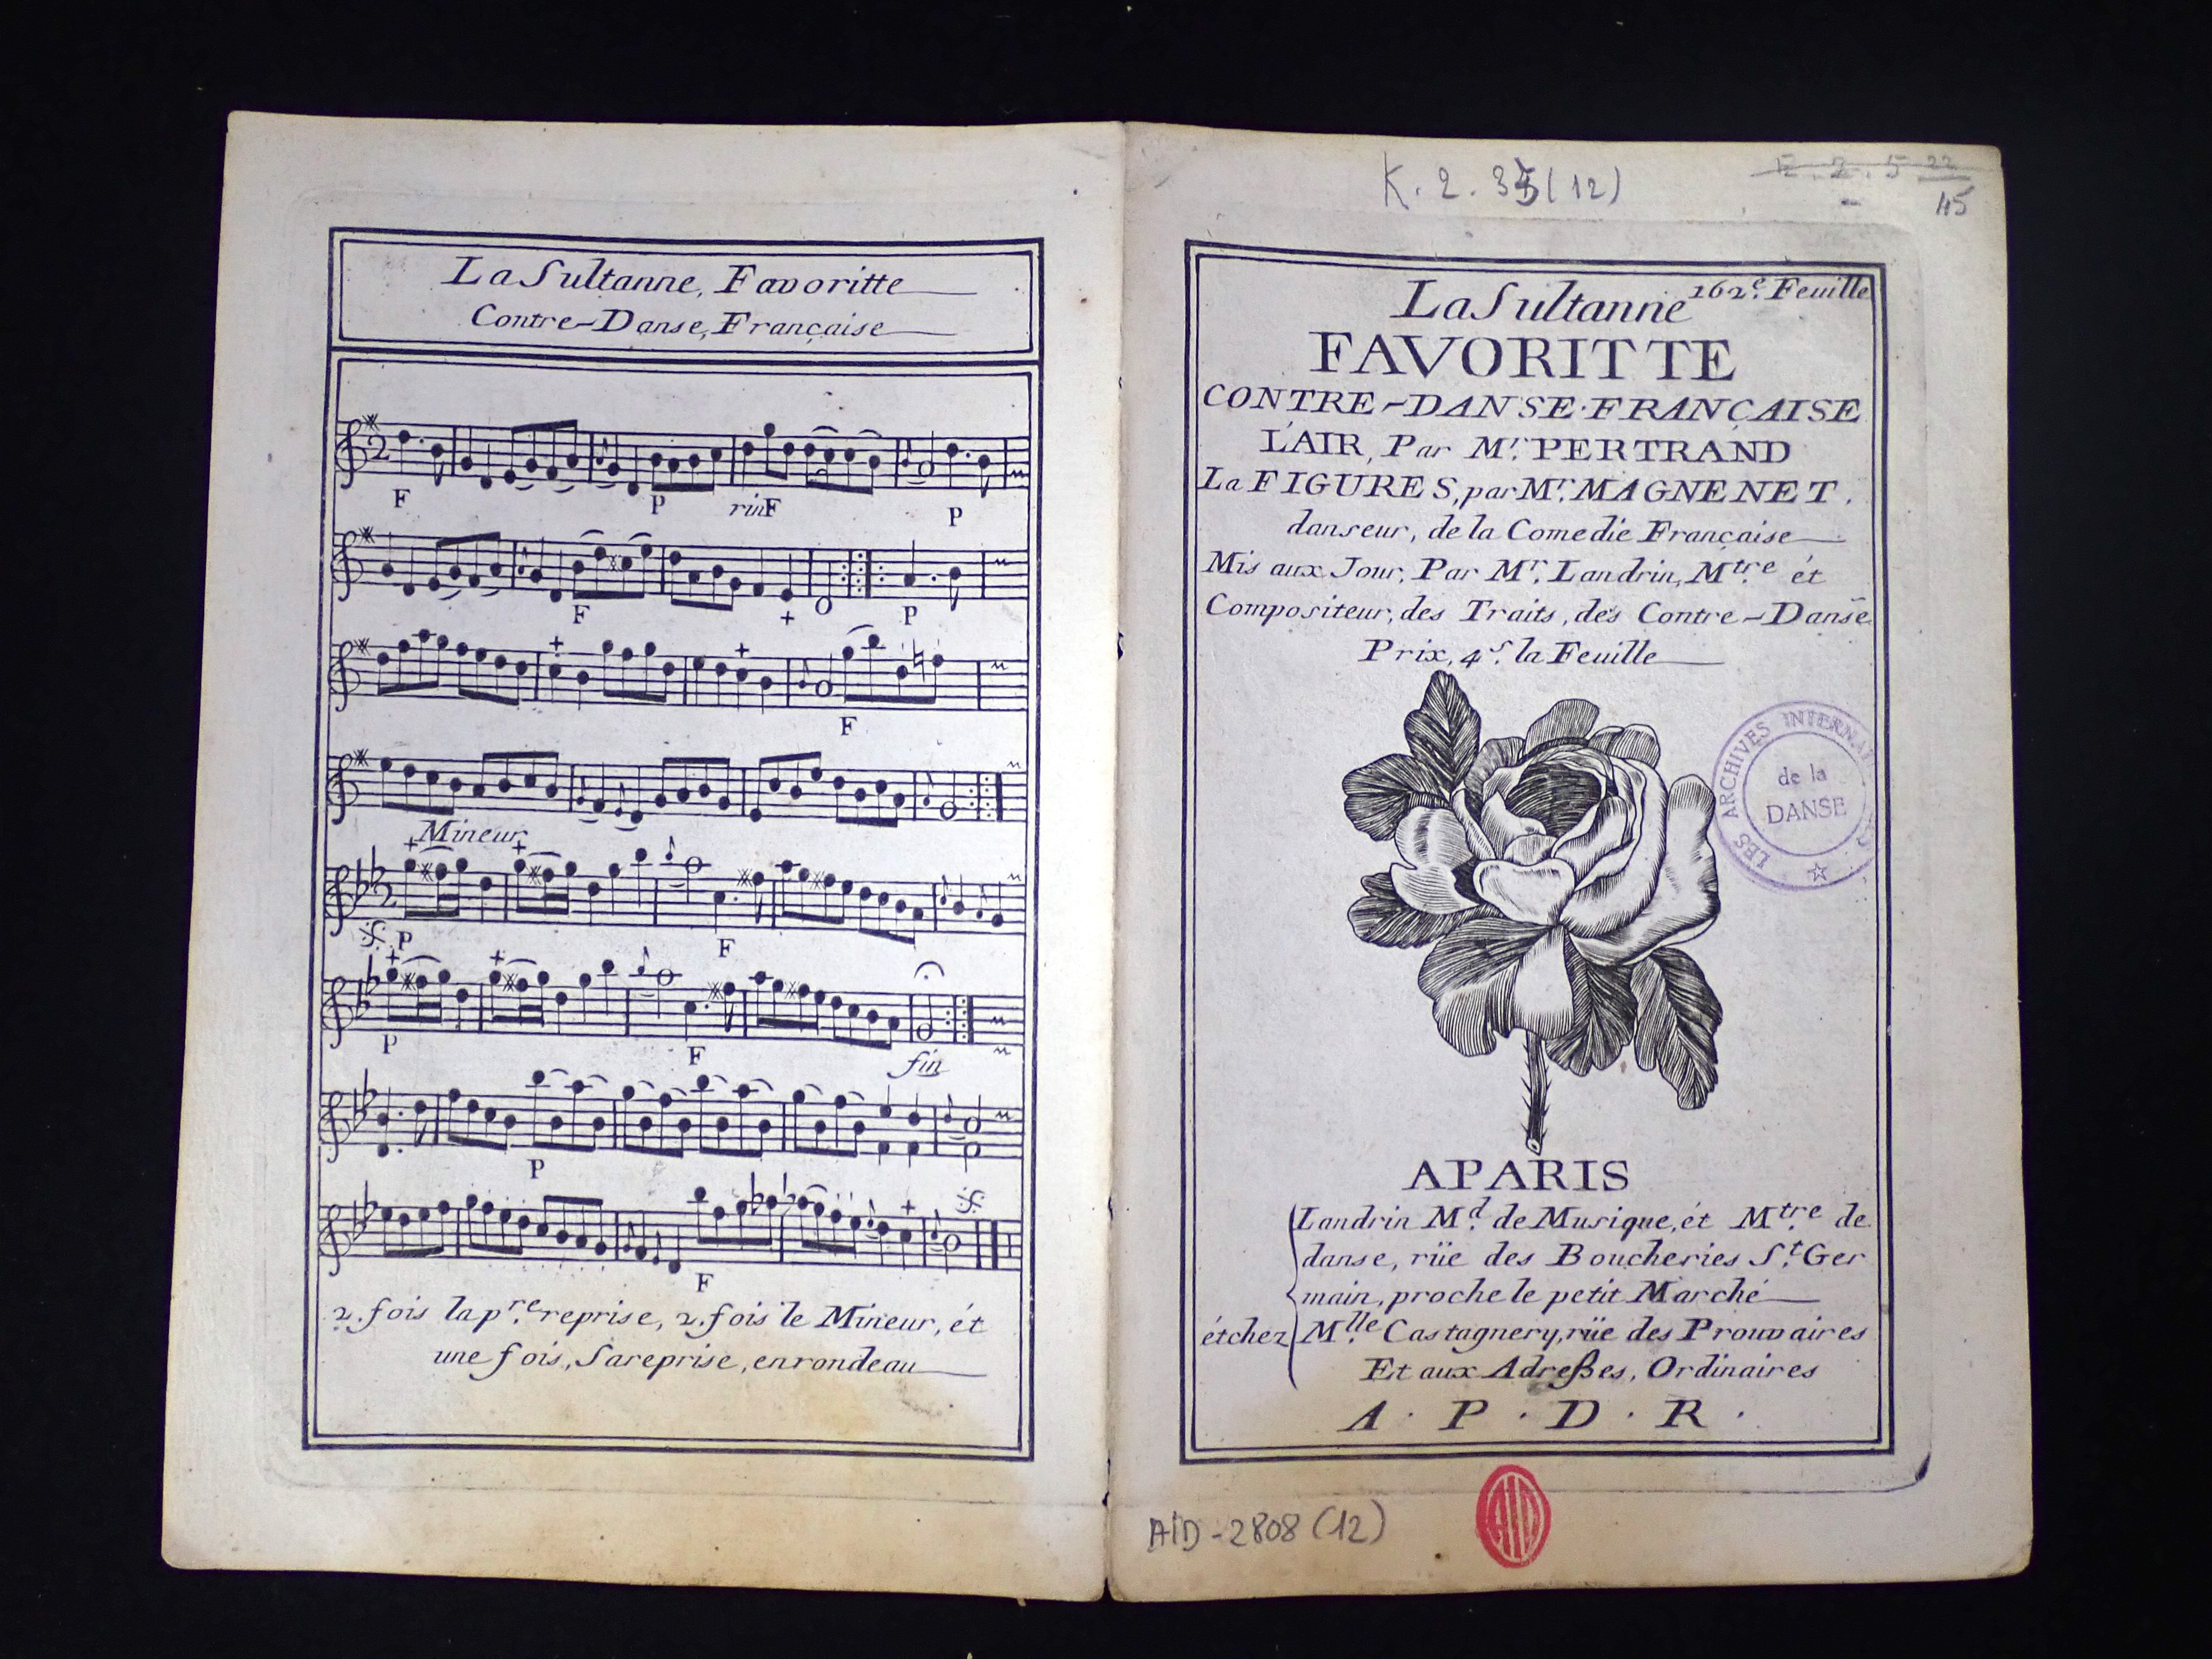 La Sultanne, Favoritte
Contre-Danse, Française
2
F
P
rinF
P
F
+
P
+
+
F
Mineur
+
+
P
F
+
+
P
F
fin
P
+
F
2. fois la p.re reprise, 2. fois le Mineur, ét
une fois, Sa reprise, en rondeau
K. 2. 35 (12)
22
45
162e. Feuille
La Sultanne
FAVORITTE
CONTRE-DANSE FRANÇAISE
L'AIR, Par Mr. PERTRAND
La FIGURES, par Mr. MAGNENET,
danseur, de la Comedie Française
Mis aux Jour, Par Mr. Landrin, Mtre. ét
Compositeur, des Traits, dés Contre-Danse
Prix, 4s. la Feuille
LES ARCHIVES INTERNA
de la
DANSE
A PARIS
Landrin Md. de Musique, ét Mtre. de
danse, rüe des Boucheries St. Ger
main, proche le petit Marché
ét chez Mlle. Castagnery, rüe des Prouvaires
Et aux Adreßes, Ordinaires
A . P . D . R .
AID-2808 (12)
AID